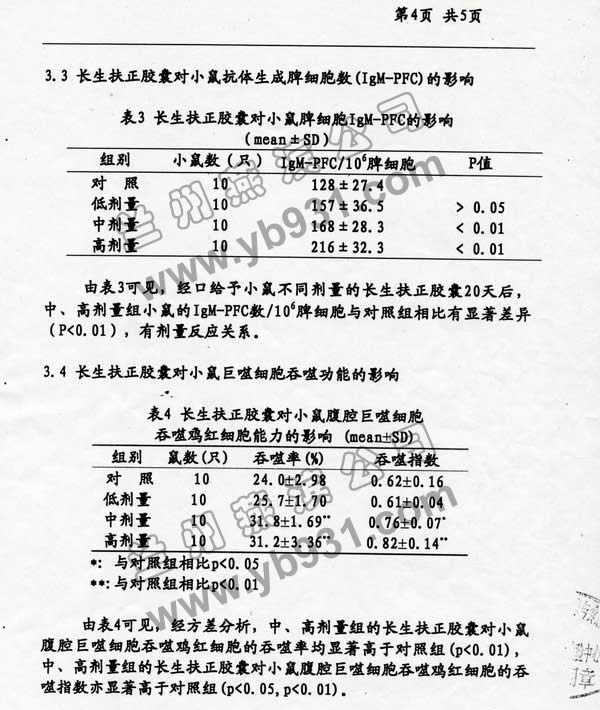 第4页 共5页
3.3 长生扶正胶囊对小鼠抗体生成脾细胞数(IgM-PFC)的影响
表3 长生扶正胶囊对小鼠脾细胞IgM-PFC的影响
(mean±SD)
组别 小鼠数(只) IgM-PFC/10⁶脾细胞 P值
对 照 10 128±27.4
低剂量 10 157±36.5 > 0.05
中剂量 10 168±28.3 < 0.01
高剂量 10 216±32.3 < 0.01
由表3可见，经口给予小鼠不同剂量的长生扶正胶囊20天后，
中、高剂量组小鼠的IgM-PFC数/10⁶脾细胞与对照组相比有显著差异
(P<0.01)，有剂量反应关系。
3.4 长生扶正胶囊对小鼠巨噬细胞吞噬功能的影响
表4 长生扶正胶囊对小鼠腹腔巨噬细胞
吞噬鸡红细胞能力的影响 (mean±SD)
组别 鼠数(只) 吞噬率(%) 吞噬指数
对 照 10 24.0±2.98 0.62±0.16
低剂量 10 25.7±1.70 0.61±0.04
中剂量 10 31.8±1.69** 0.76±0.07*
高剂量 10 31.2±3.36** 0.82±0.14**
*: 与对照组相比p<0.05
**:与对照组相比p<0.01
由表4可见，经方差分析，中、高剂量组的长生扶正胶囊对小鼠
腹腔巨噬细胞吞噬鸡红细胞的吞噬率均显著高于对照组(p<0.01)，
中、高剂量组的长生扶正胶囊对小鼠腹腔巨噬细胞吞噬鸡红细胞的吞
噬指数亦显著高于对照组(p<0.05,p<0.01)。
兰州燕族公司
www.yb931.com
兰州燕族公司
www.yb931.com